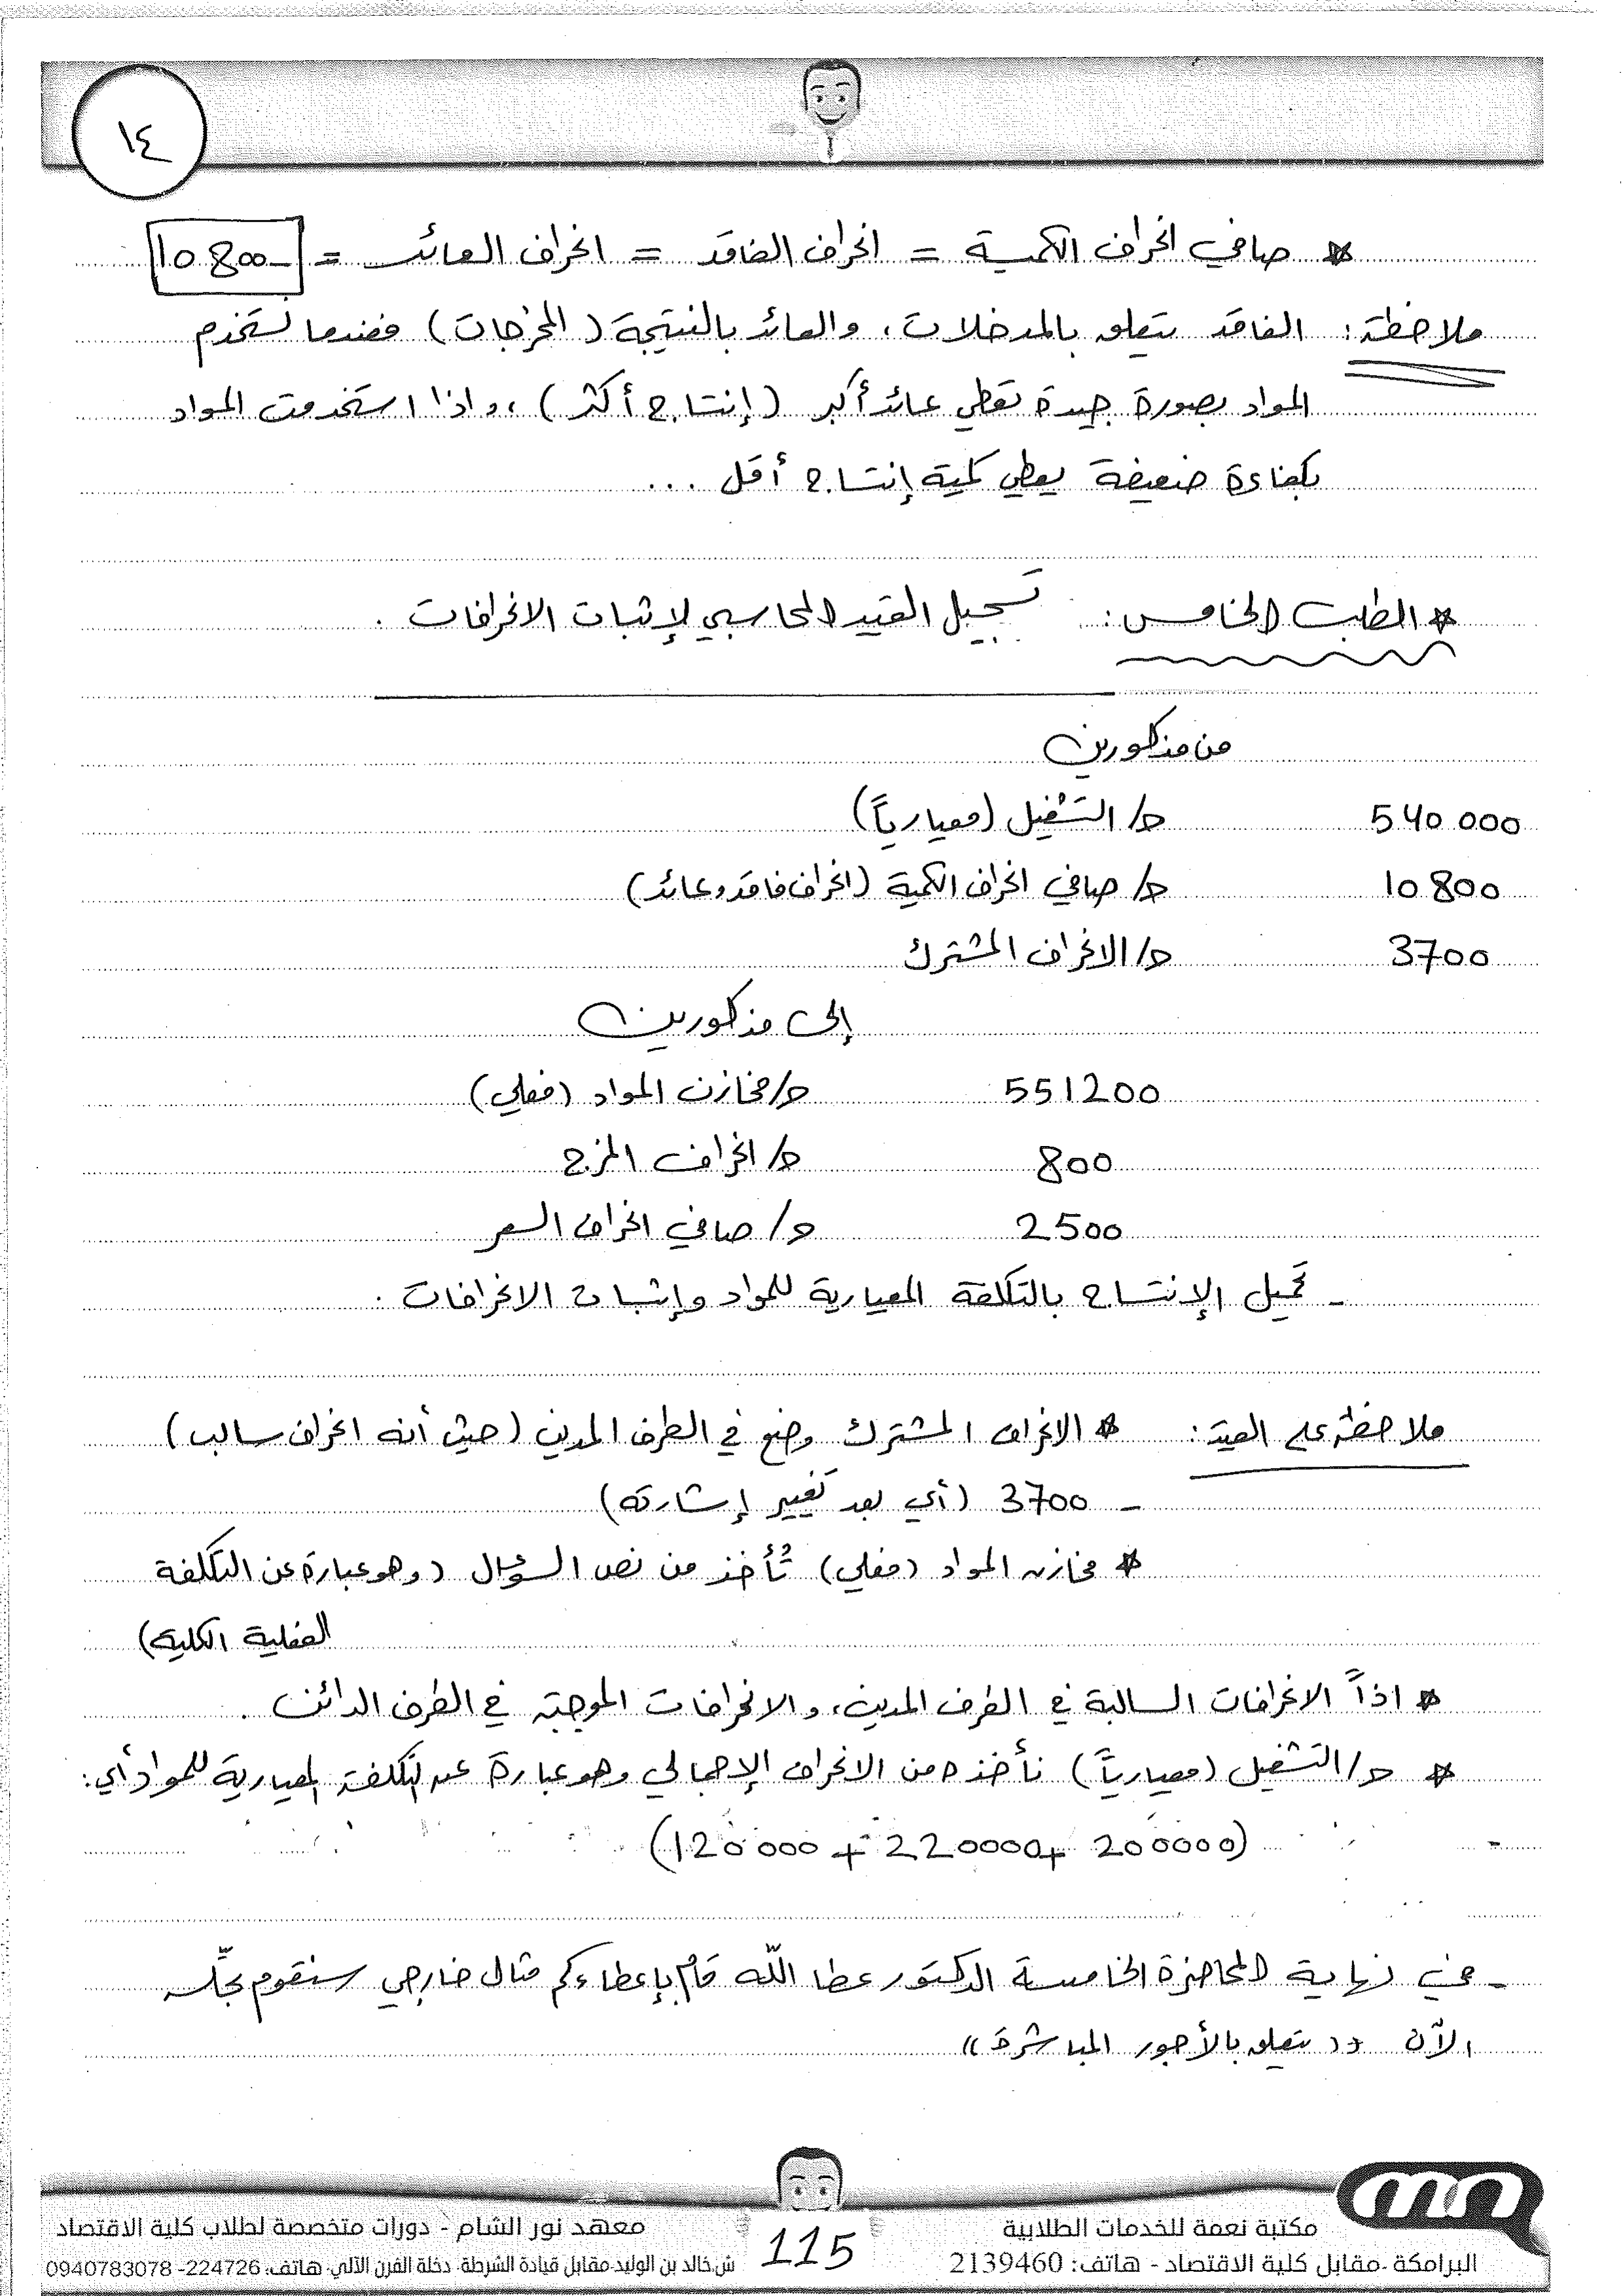 ١٤
* صافي انحراف الكمية = انحراف الفاقد = انحراف العائد = 10800-
ملاحظة: الفاقد يتعلق بالمدخلات، والعائد بالنتيجة (المخرجات) فعندما نستخدم
المواد بصورة جيدة تعطي عائد أكبر (إنتاج أكثر)، واذا استخدمت المواد
بكفاءة ضعيفة يعطي كمية إنتاج أقل ...
* الطلب الخامس: تسجيل القيد المحاسبي لإثبات الانحرافات.
من مذكورين
540000 ح/ التشغيل (معيارياً)
10800 ح/ صافي انحراف الكمية (انحراف فاقد وعائد)
3700 ح/ الانحراف المشترك
إلى مذكورين
551200 ح/ مخازن المواد (فعلي)
800 ح/ انحراف المزج
2500 ح/ صافي انحراف السعر
- تحميل الإنتاج بالتكلفة المعيارية للمواد وإثبات الانحرافات.
ملاحظة على القيد: * الانحراف المشترك وضع في الطرف المدين (حيث أنه انحراف سالب)
- 3700 (أي بعد تغيير إشارته)
* مخازن المواد (فعلي) تُأخذ من نص السؤال (وهو عبارة عن التكلفة
الفعلية الكلية)
* اذاً الانحرافات السالبة في الطرف المدين، والانحرافات الموجبة في الطرف الدائن.
* ح/ التشغيل (معيارياً) نأخذه من الانحراف الإجمالي وهو عبارة عن التكلفة المعيارية للمواد أي:
(120000 + 220000 + 200000)
- في نهاية المحاضرة الخامسة الدكتور عطا اللّه قام بإعطاءكم مثال خارجي سنقوم بحلّه
الآن "يتعلق بالأجور المباشرة"
مكتبة نعمة للخدمات الطلابية
البرامكة -مقابل كلية الاقتصاد - هاتف: 2139460
115
معهد نور الشام - دورات متخصصة لطلاب كلية الاقتصاد
ش.خالد بن الوليد-مقابل قيادة الشرطة- دخلة الفرن الآلي- هاتف: 224726- 0940783078